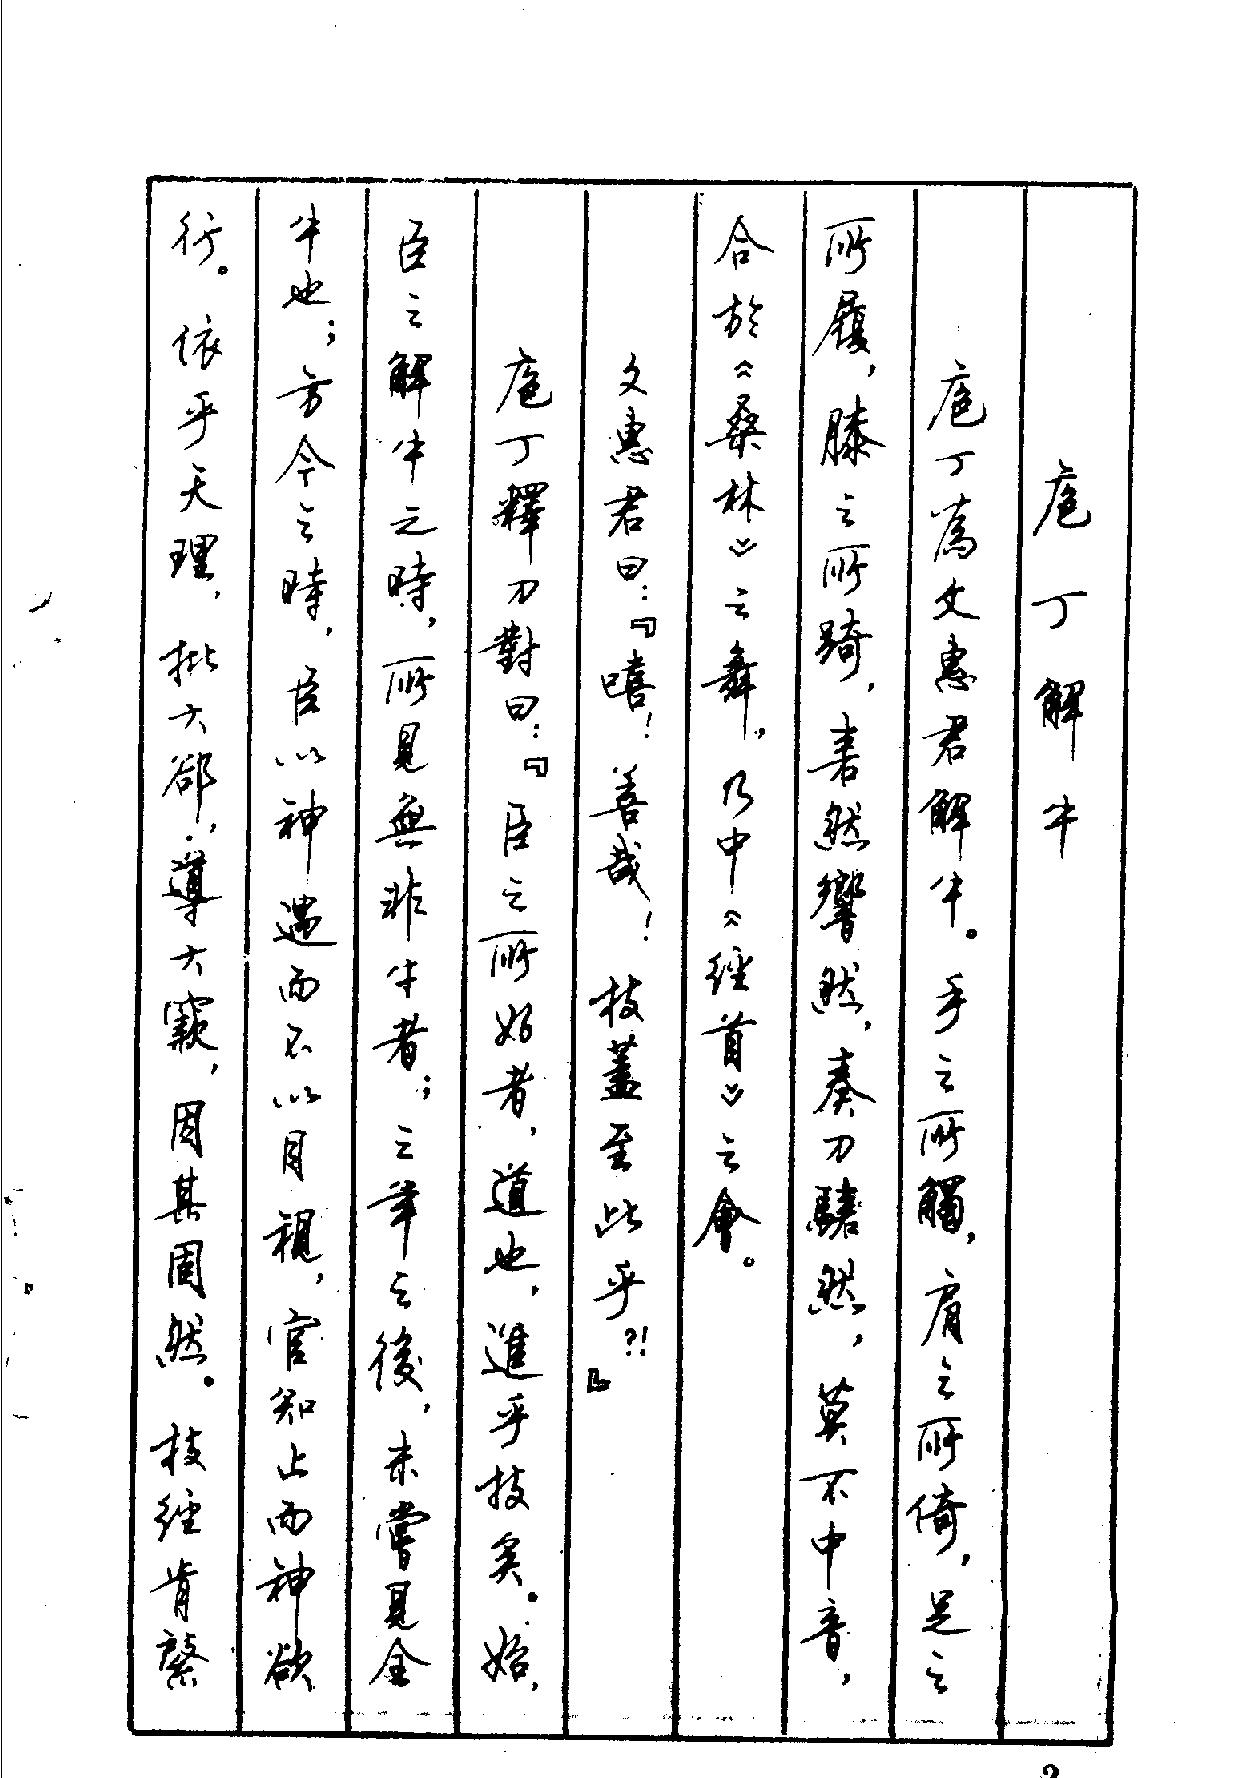 庖丁解牛
庖丁為文惠君解牛。手之所觸，肩之所倚，足之
所履，膝之所踦，砉然響然，奏刀騞然，莫不中音，
合於《桑林》之舞，乃中《經首》之會。
文惠君曰：『嘻！善哉！技蓋至此乎？！』
庖丁釋刀對曰：『臣之所好者，道也，進乎技矣。始，
臣之解牛之時，所見無非牛者；三年之後，未嘗見全
牛也；方今之時，臣以神遇而不以目視，官知止而神欲
行。依乎天理，批大郤，導大窾，因其固然。技經肯綮